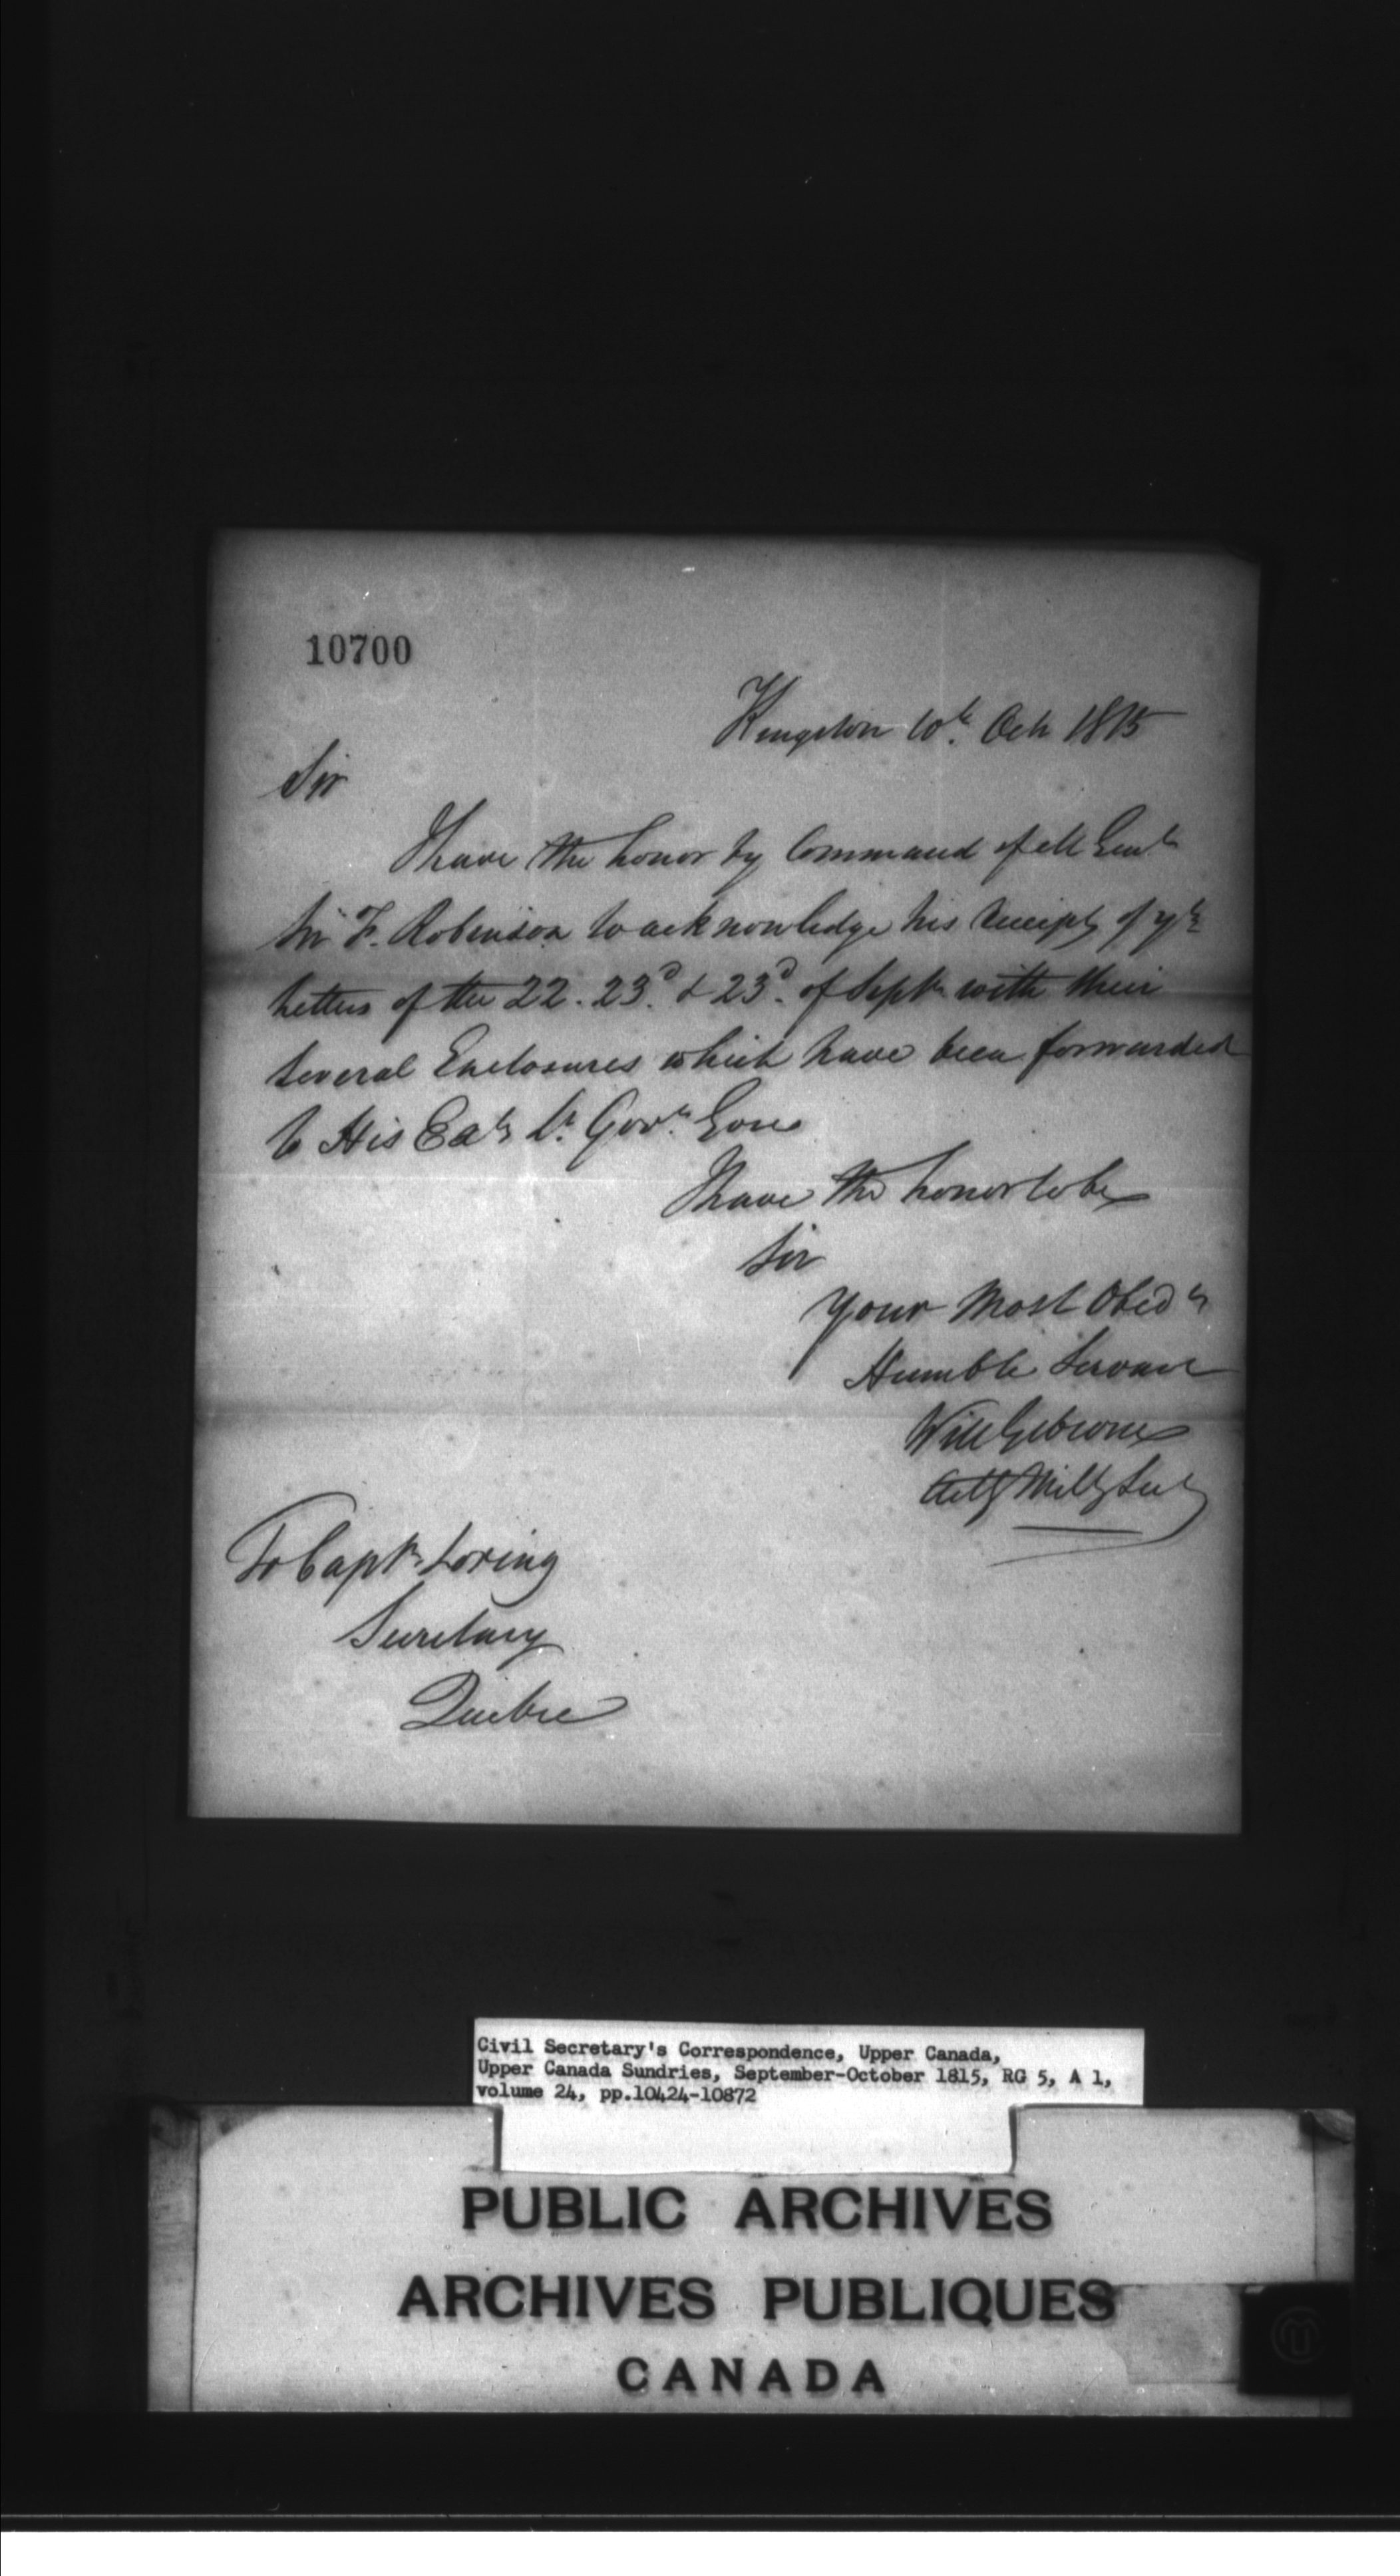 10700
Kingston 10th. Octr 1815
Sir
I have the honor by Command of M Genl
Sir F. Robinson to acknowledge his receipt of yr
Letters of the 22. 23d. & 23d. of Septr with their
several Enclosures which have been forwarded
to His Exy Lt. Govr. Gore
I have the honor to be
Sir
Your Most Obedt
Humble Servant
Will Gibsone
Actg Milty Secy
To Captn. Loring
Secretary
Quebec
Civil Secretary's Correspondence, Upper Canada,
Upper Canada Sundries, September-October 1815, RG 5, A 1,
volume 24, pp.10424-10872
PUBLIC ARCHIVES
ARCHIVES PUBLIQUES
CANADA